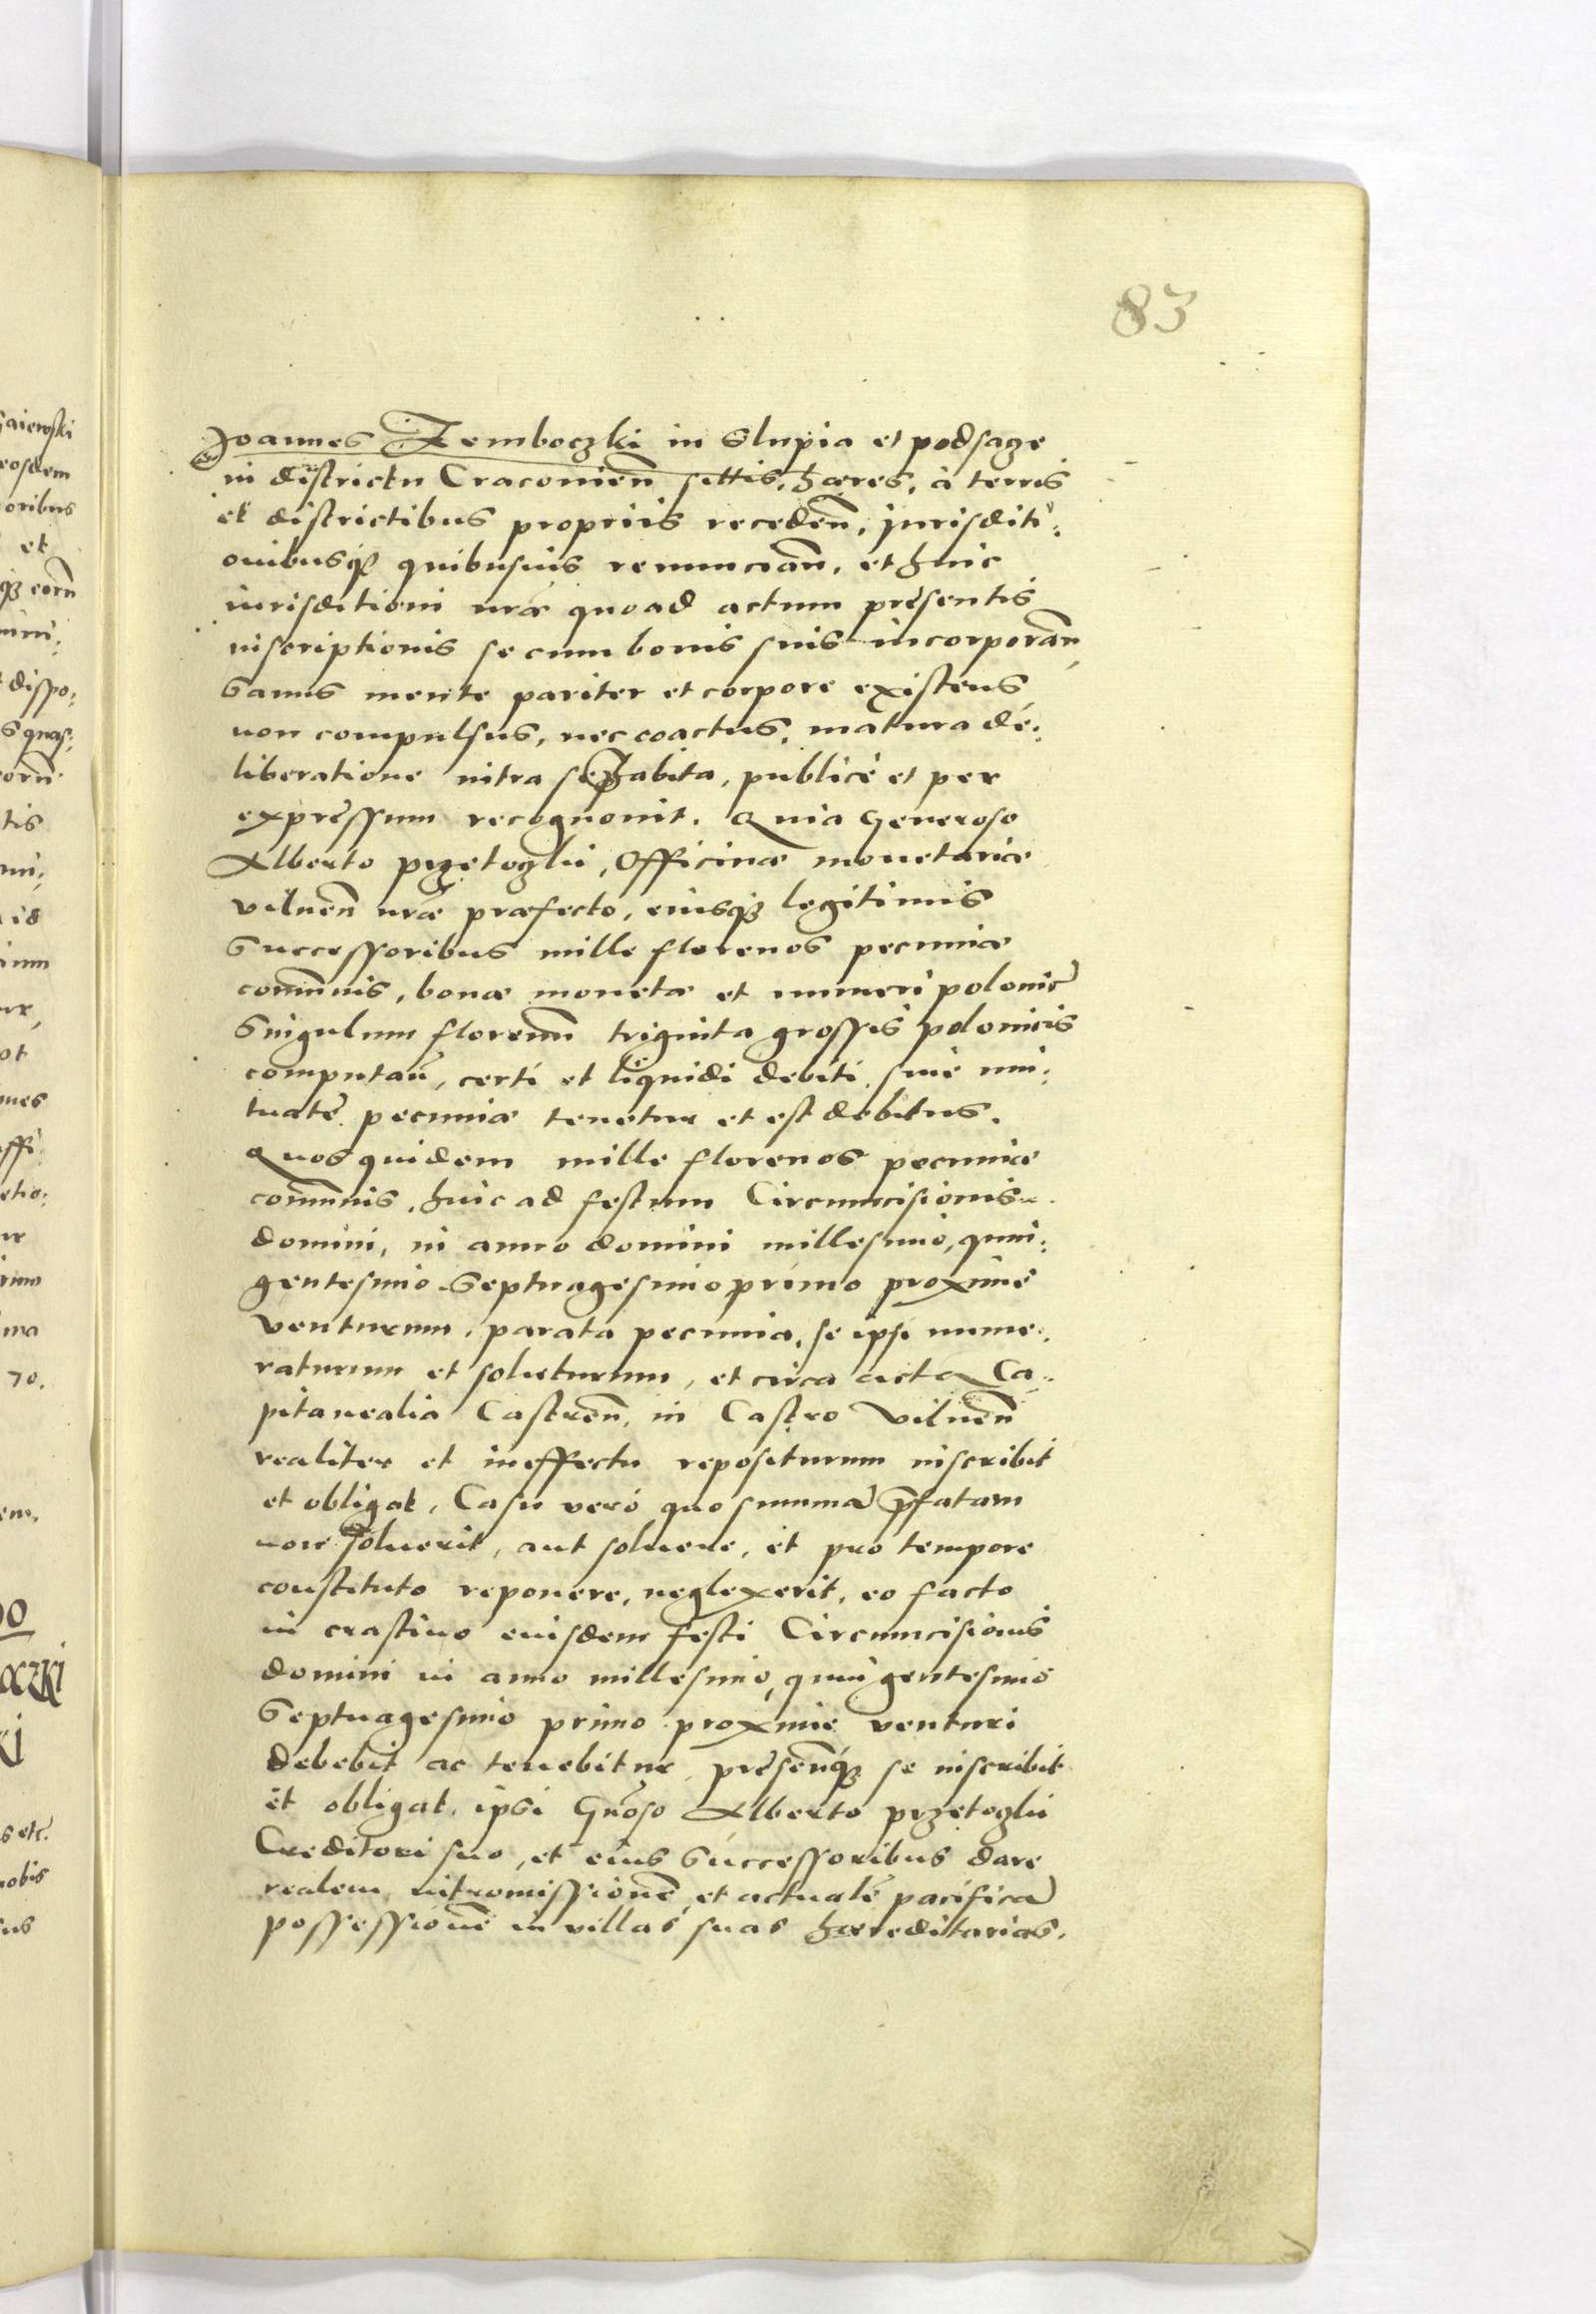 83
Joannes Zemboczki in Slupia et podsaze
in districtu Craconien̄ sittis, hæres, à terris
et districtibus propriis receden̄, Jurisditi:
onibusq3 quibusuis renuncian̄, et huic
iurisditioni n̄ræ quoad actum præsentis
inscriptionis se cum bonis suis incorporan̄,
Sanus mente pariter et corpore existens,
non compulsus, nec coactus, matura de:
liberatione intra se habita, publicè et per
expressum recognouit. Quia Generoso
Alberto przetoczki, Officinæ monetariæ
vilnen̄ n̄ræ præfecto, eiusq3 legitimis
Successoribus mille florenos pecuniæ
com̄unis, bonæ monetæ et numeri polonic
Singulum florenū triginta grossis polonicis
computan̄, certi et liquidi debiti, siue mu:
tuatę pecuniæ tenetur et est debitus.
Quos quidem mille florenos pecuniæ
com̄unis, huic ad festum Circumcisionis
domini, in anno domini millesimo, quin:
gentesimo Septuagesimo primo proxime
venturum, parata pecunia, se ipsi nume:
raturum et soluturum, et circa acta Ca:
pitanealia Castren̄, in Castro Vilnen̄
realiter et in effectu repositurum inscribit
et obligat, Casu verò quo summā p̄fatam
non soluerit, aut soluere, et pro tempore
constituto reponere, neglexerit, eo facto
in crastino eiusdem festi Circumcisionis
domini in anno millesimo, quingentesimo
Septuagesimo primo proxime venturi
debebit ac tenebitur, præsentiq3 se inscribit
et obligat, ipsi Gn̄oso Alberto przetoczki
Creditori suo, et eius Successoribus dare
realem intromissionē, et actualē pacificā
possessionē in villas suas hæreditarias,